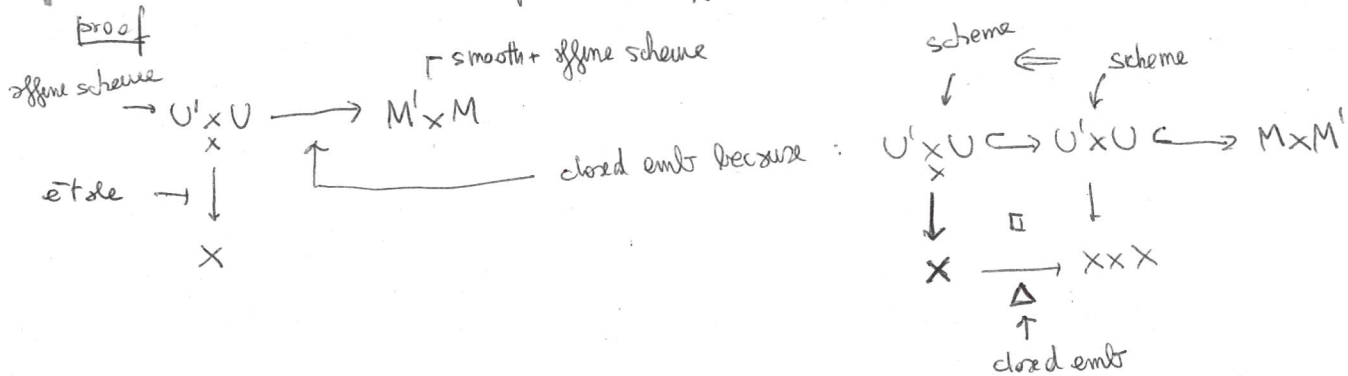 proof
affine scheme
→ U' × U ⟶ M' × M
X
smooth + affine scheme
étale →
X
closed emb because :
scheme ⇐ scheme
U' × U ↪ U' × U ↪ M × M'
X
□
X ⟶ X × X
Δ
↑
closed emb